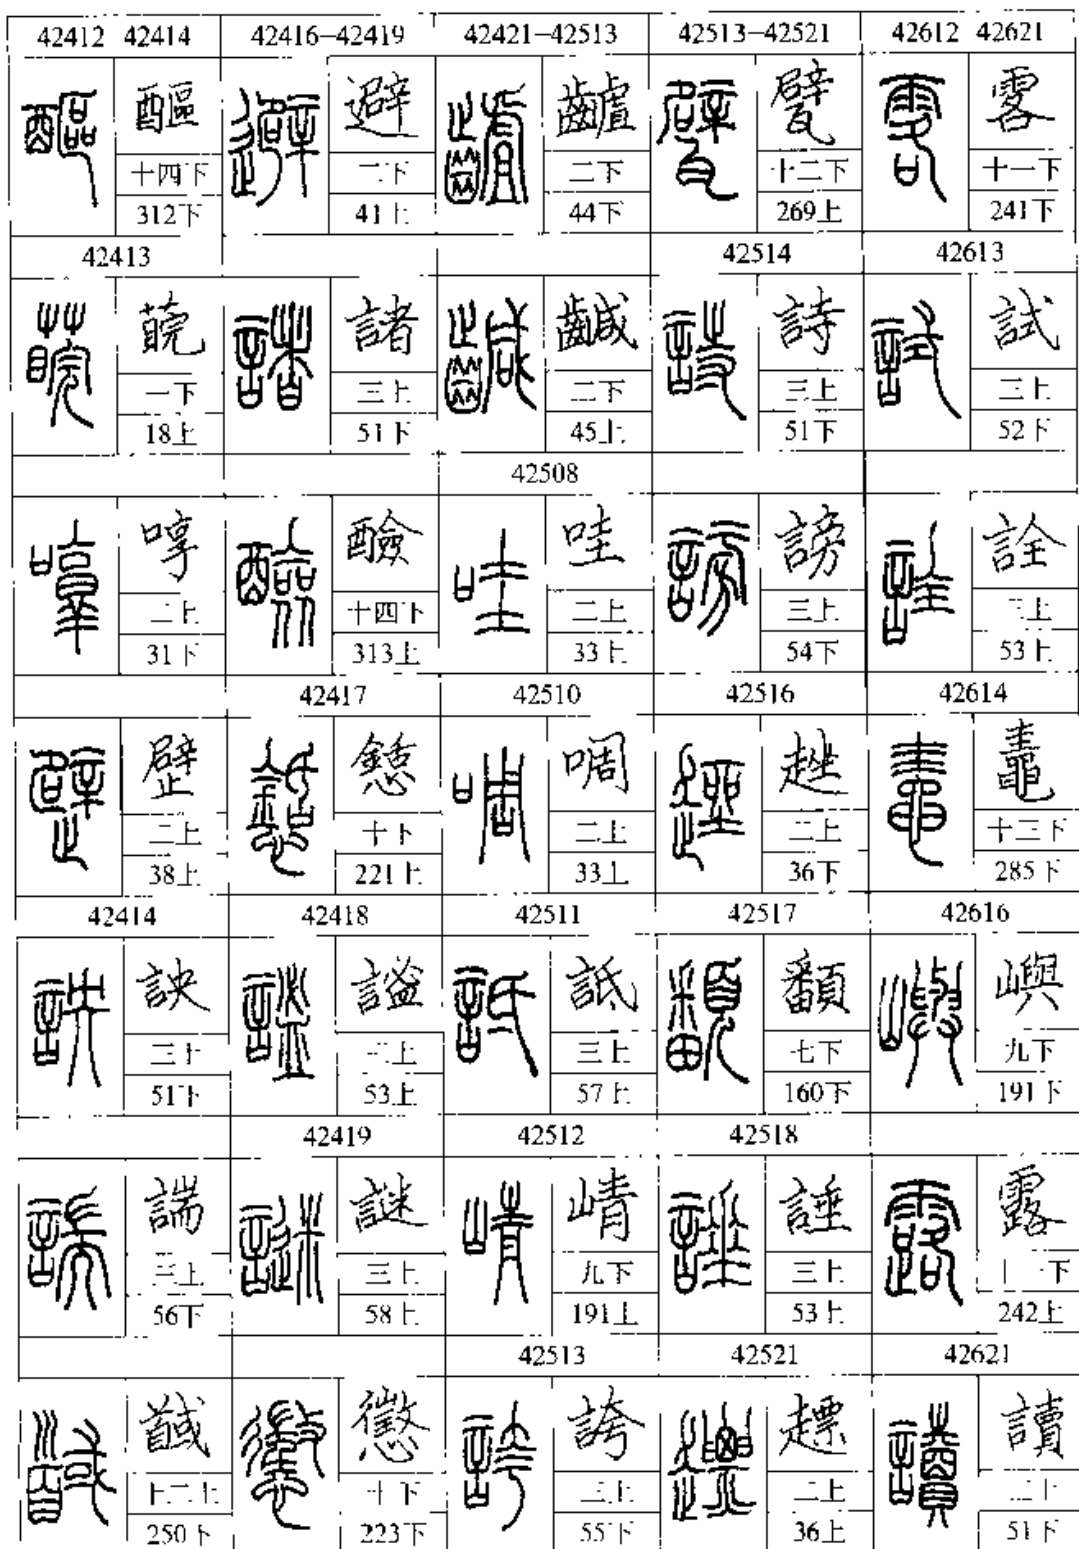 42412 42414
醧
十四下
312下
42413
萖
一下
18上
啍
二上
31下
壁
二上
38上
42414
詇
三上
51下
諯
三上
56下
聝
十二上
250下
42416–42419
避
二下
41上
諸
三上
51下
醶
十四下
313上
42417
懖
十下
221上
42418
謚
三上
53上
42419
謎
三上
58上
懲
十下
223下
42421–42513
齇
二下
44下
鹹
二下
45上
42508
哇
二上
33上
42510
啁
二上
33上
42511
詆
三上
57上
42512
崝
九下
191上
42513
誇
三上
55下
42513–42521
甓
十二下
269上
42514
詩
三上
51下
謗
三上
54下
42516
趖
二上
36下
42517
顤
七下
160下
42518
諈
三上
53上
42521
趮
二上
36上
42612 42621
露
十一下
241下
42613
試
三上
52下
詮
三上
53上
42614
鼀
十三下
285下
42616
嶼
九下
191下
露
十一下
242上
42621
讀
三上
51下